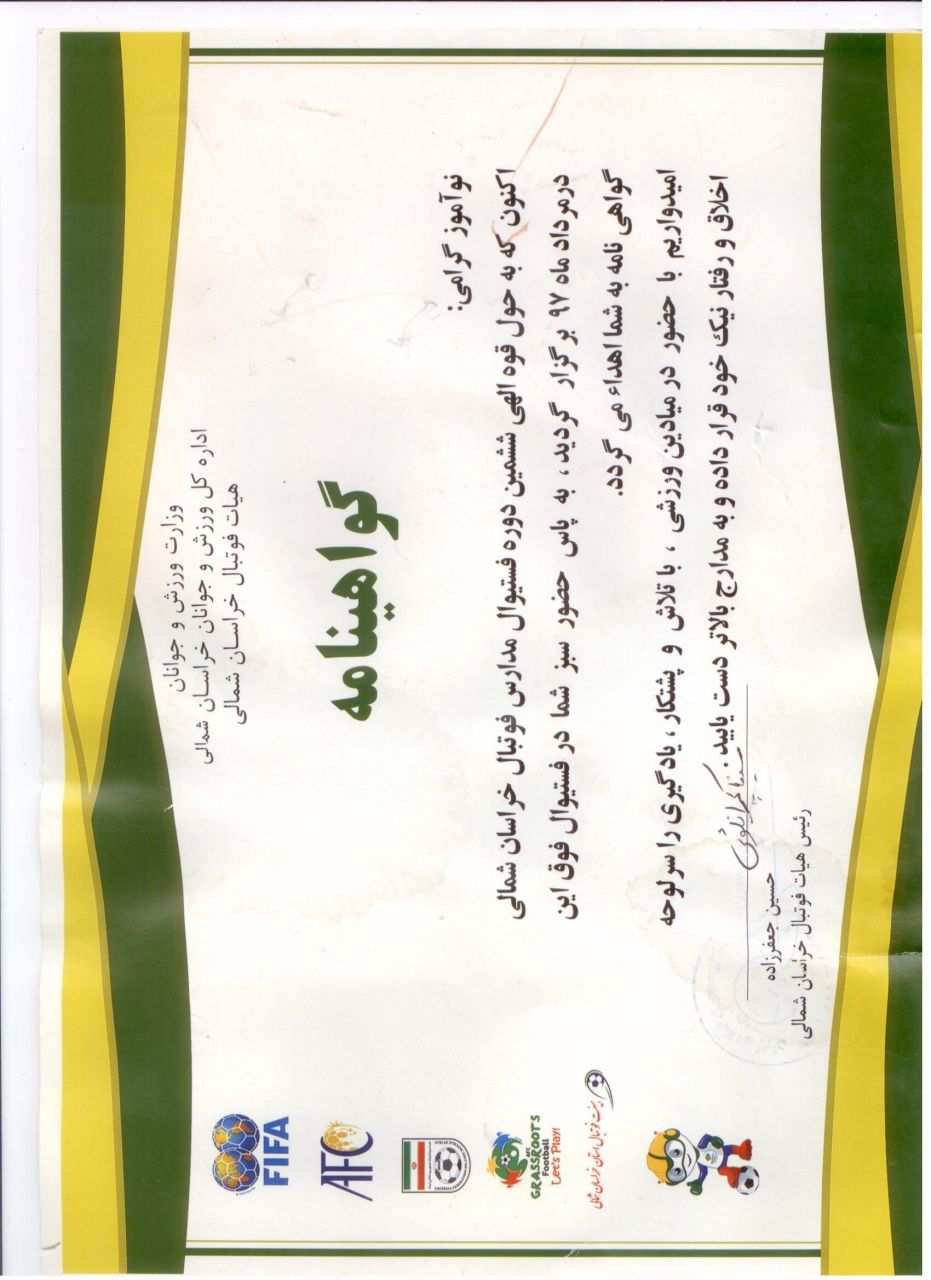 وزارت ورزش و جوانان
اداره کل ورزش و جوانان خراسان شمالی
هیات فوتبال خراسان شمالی
گواهینامه
نوآموز گرامی:
اکنون که به حول قوه الهی ششمین دوره فستیوال مدارس فوتبال خراسان شمالی
درمرداد ماه ۹۷ برگزار گردید ، به پاس حضور سبز شما در فستیوال فوق این
گواهی نامه به شما اهداء می گردد.
امیدواریم با حضور در میادین ورزشی ، با تلاش و پشتکار ، یادگیری را سرلوحه
اخلاق و رفتار نیک خود قرار داده و به مدارج بالاتر دست یابید .
حسین جعفرزاده
رئیس هیات فوتبال خراسان شمالی
FIFA
AFC
AFC
GRASSROOTS
Football
Let's Play!
هیئت فوتبال استان خراسان شمالی